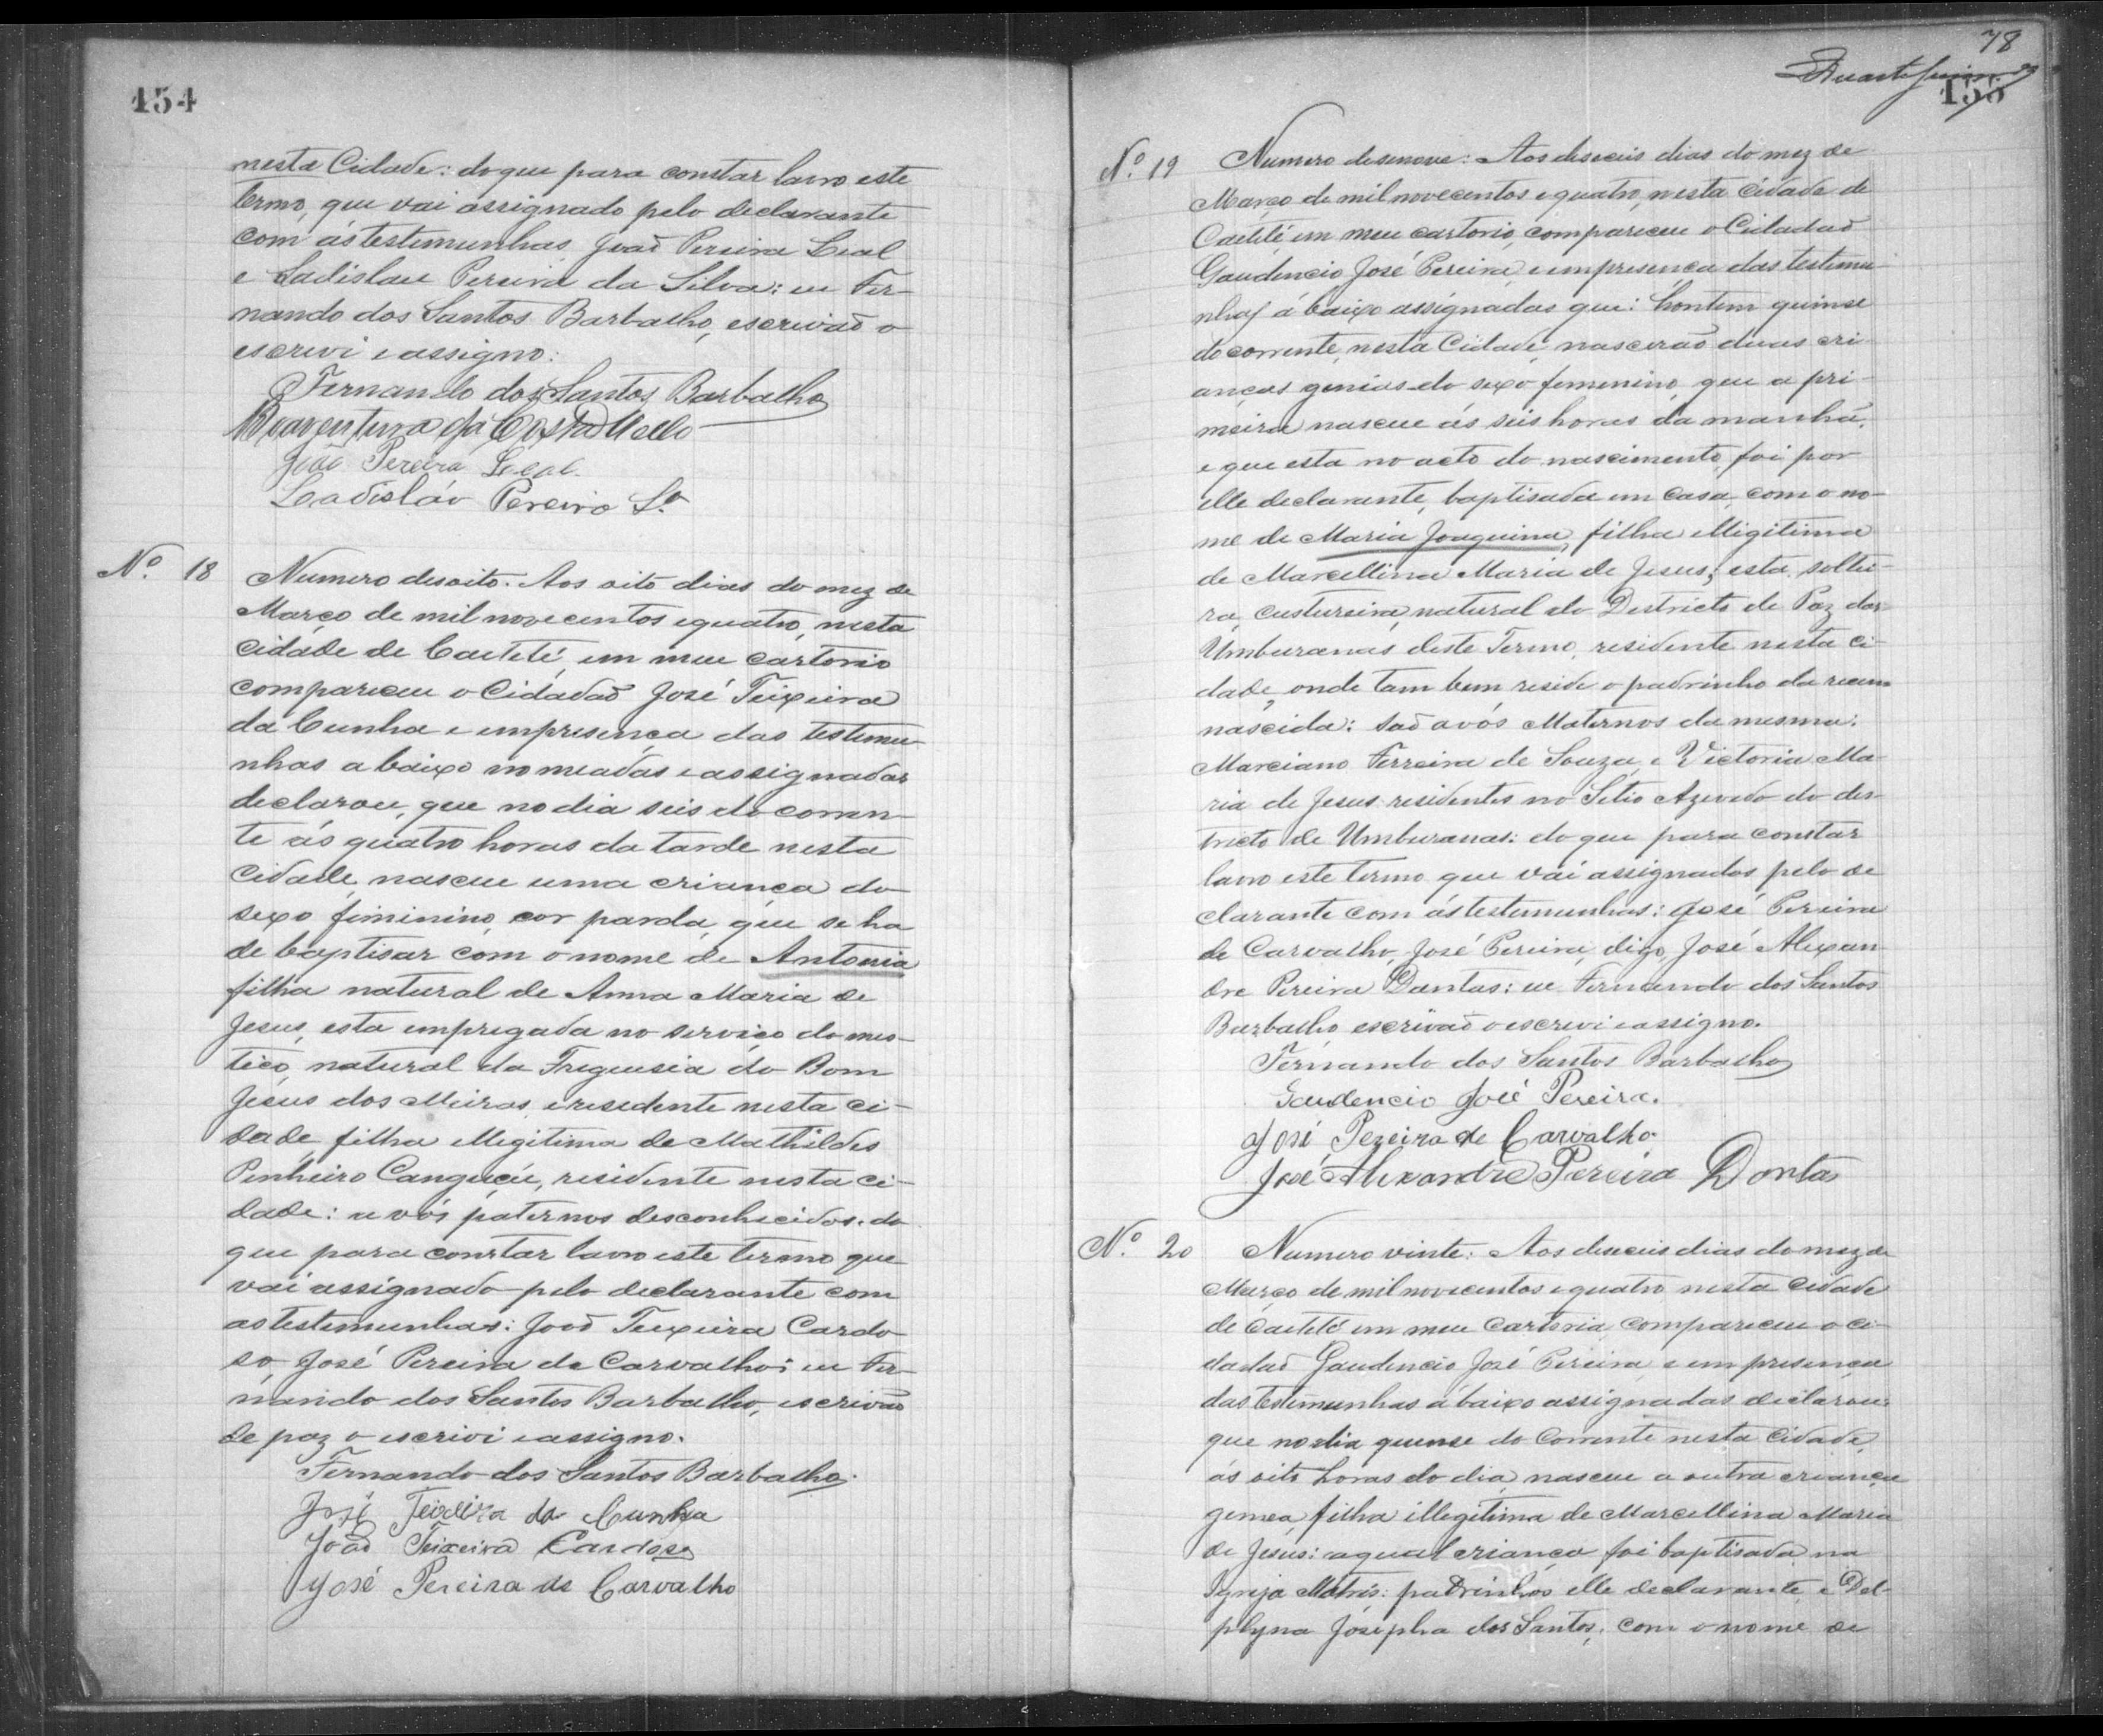 154
nesta Cidade: do que para constar lavro este
termo, que vai assignado pelo declarante
com ás testemunhas João Pereira Leal
e Ladislau Pereira da Silva: eu Fer-
nando dos Santos Barbalho, escrivaõ o
escrevi e assigno:
Fernando dos Santos Barbalho
Boaventura da Costa Mello
João Pereira Leal
Ladisláo Pereira Sª
Nº 18 Numero desoito. Aos oito dias do mez de
Março de mil novecentos e quatro, nesta
cidade de Caeteté, em meu cartorio
compareceu o Cidadaõ José Teixeira
da Cunha e em presença das testemu-
nhas abaixo nomeadas e assignadas
declarou, que no dia seis do corren-
te ás quatro horas da tarde nesta
cidade, nasceu uma criança do
sexo feminino, cor parda, que se ha
de baptisar com o nome de Antonia
filha natural de Anna Maria de
Jesus, esta empregada no serviço domes-
tico, natural da Freguesia do Bom
Jesus dos Meiras, e residente nesta ci-
dade, filha illegitima de Mathildes
Pinheiro Canguçú, residente nesta ci-
dade: avós paternos desconhecidos. do
que para constar lavro este termo que
vai assignado pelo declarante com
as testemunhas: Joaõ Teixeira Cardo-
so, José Pereira de Carvalho: eu Fer-
nando dos Santos Barbalho, escrivaõ
de paz o escrivi e assigno.
Fernando dos Santos Barbalho.
José Teixeira da Cunha
Joaõ Teixeira Cardoso
José Pereira de Carvalho
78
155
Nº 19 Numero desenove: Aos deseseis dias do mez de
Março de mil novecentos e quatro, nesta cidade de
Caeteté em meu cartorio, compareceu o Cidadaõ
Gaudencio José Pereira, e em presença das testemu-
nhas á baixo assignadas que: hontem quinse
do corrente, nesta Cidade, nasceraõ duas cri-
anças gemias do sexo femenino, que a pri-
meira nasceu ás seis horas da manhã,
e que esta no acto do nascimento, foi por
elle declarante, baptisada em casa, com o no-
me de Maria Joaquina, filha illigitima
de Marcellina Maria de Jesus; esta soltei-
ra, custureira, natural do Destricto de Paz das
Umburanas deste Termo, residente nesta ci-
dade, onde tam bem reside o padrinho da recem
nascida: saõ avós Maternos da mesma:
Marciano Ferreira de Souza, e Victoria Ma-
ria de Jesus residentes no Sitio Azevedo do des-
tricto de Umburanas: do que para constar
lavro este termo que vai assignados pelo de
clarante com ás testemunhas: José Pereira
de Carvalho, José Pereira, digo, José Alexan
dre Pereira Dantas: eu Fernando dos Santos
Barbalho, escrivaõ o escrevi e assigno.
Fernando dos Santos Barbalho
Gaudencio José Pereira.
José Pereira de Carvalho
José Alexandre Pereira Dantas
Nº 20 Numero vinte: Aos deseseis dias do mez de
Março de mil novecentos e quatro nesta cidade
de Caeteté em meu Cartorio, compareceu o ci-
dadaõ Gaudencio José Pereira, e em presença
das testemunhas á baixo assignadas declarou:
que no dia quense do Corrente nesta Cidade,
ás oito horas do dia, nasceu a outra criança
gemea, filha illegitima de Marcellina Maria
de Jesus: a qual criança foi baptisada na
Igreja Matris: padrinhos elle declarante, e Del-
phyna Josepha dos Santos, com o nome de